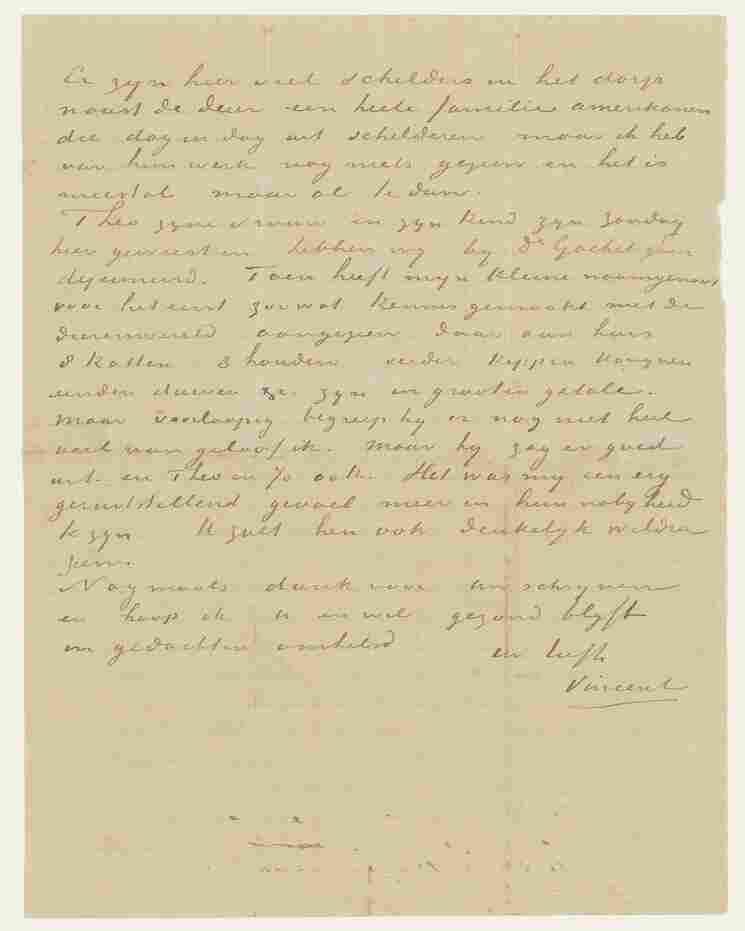 Er zyn hier veel schilders in het dorp
naast de deur een heele familie amerikanen
die dag in dag uit schilderen maar ik heb
van hun werk nog niets gezien en het is
meestal maar al te dun.
Theo zyne vrouw en zyn kind zyn zondag
hier geweest en hebben wy by Dr Gachet
dejeuneerd. Toen heeft myn kleine naamgenoot
voor het eerst zoo wat kennis gemaakt met de
dierenwereld aangezien daar aan huis
8 katten 3 honden verder kippen konynen
eenden duiven &c. zyn in grooten getale.
Maar voorloopig begreep hy er nog niet heel
veel van geloof ik. Maar hy zag er goed
uit. en Theo en Jo ook. Het was my een erg
geruststellend gevoel meer in hun nabyheid
te zyn. U zult hen ook denkelyk weldra
zien.
Nogmaals dank voor Uw schryven
en hoop ik U en Wil gezond blyft
in gedachten omhelsd
uw liefh
Vincent